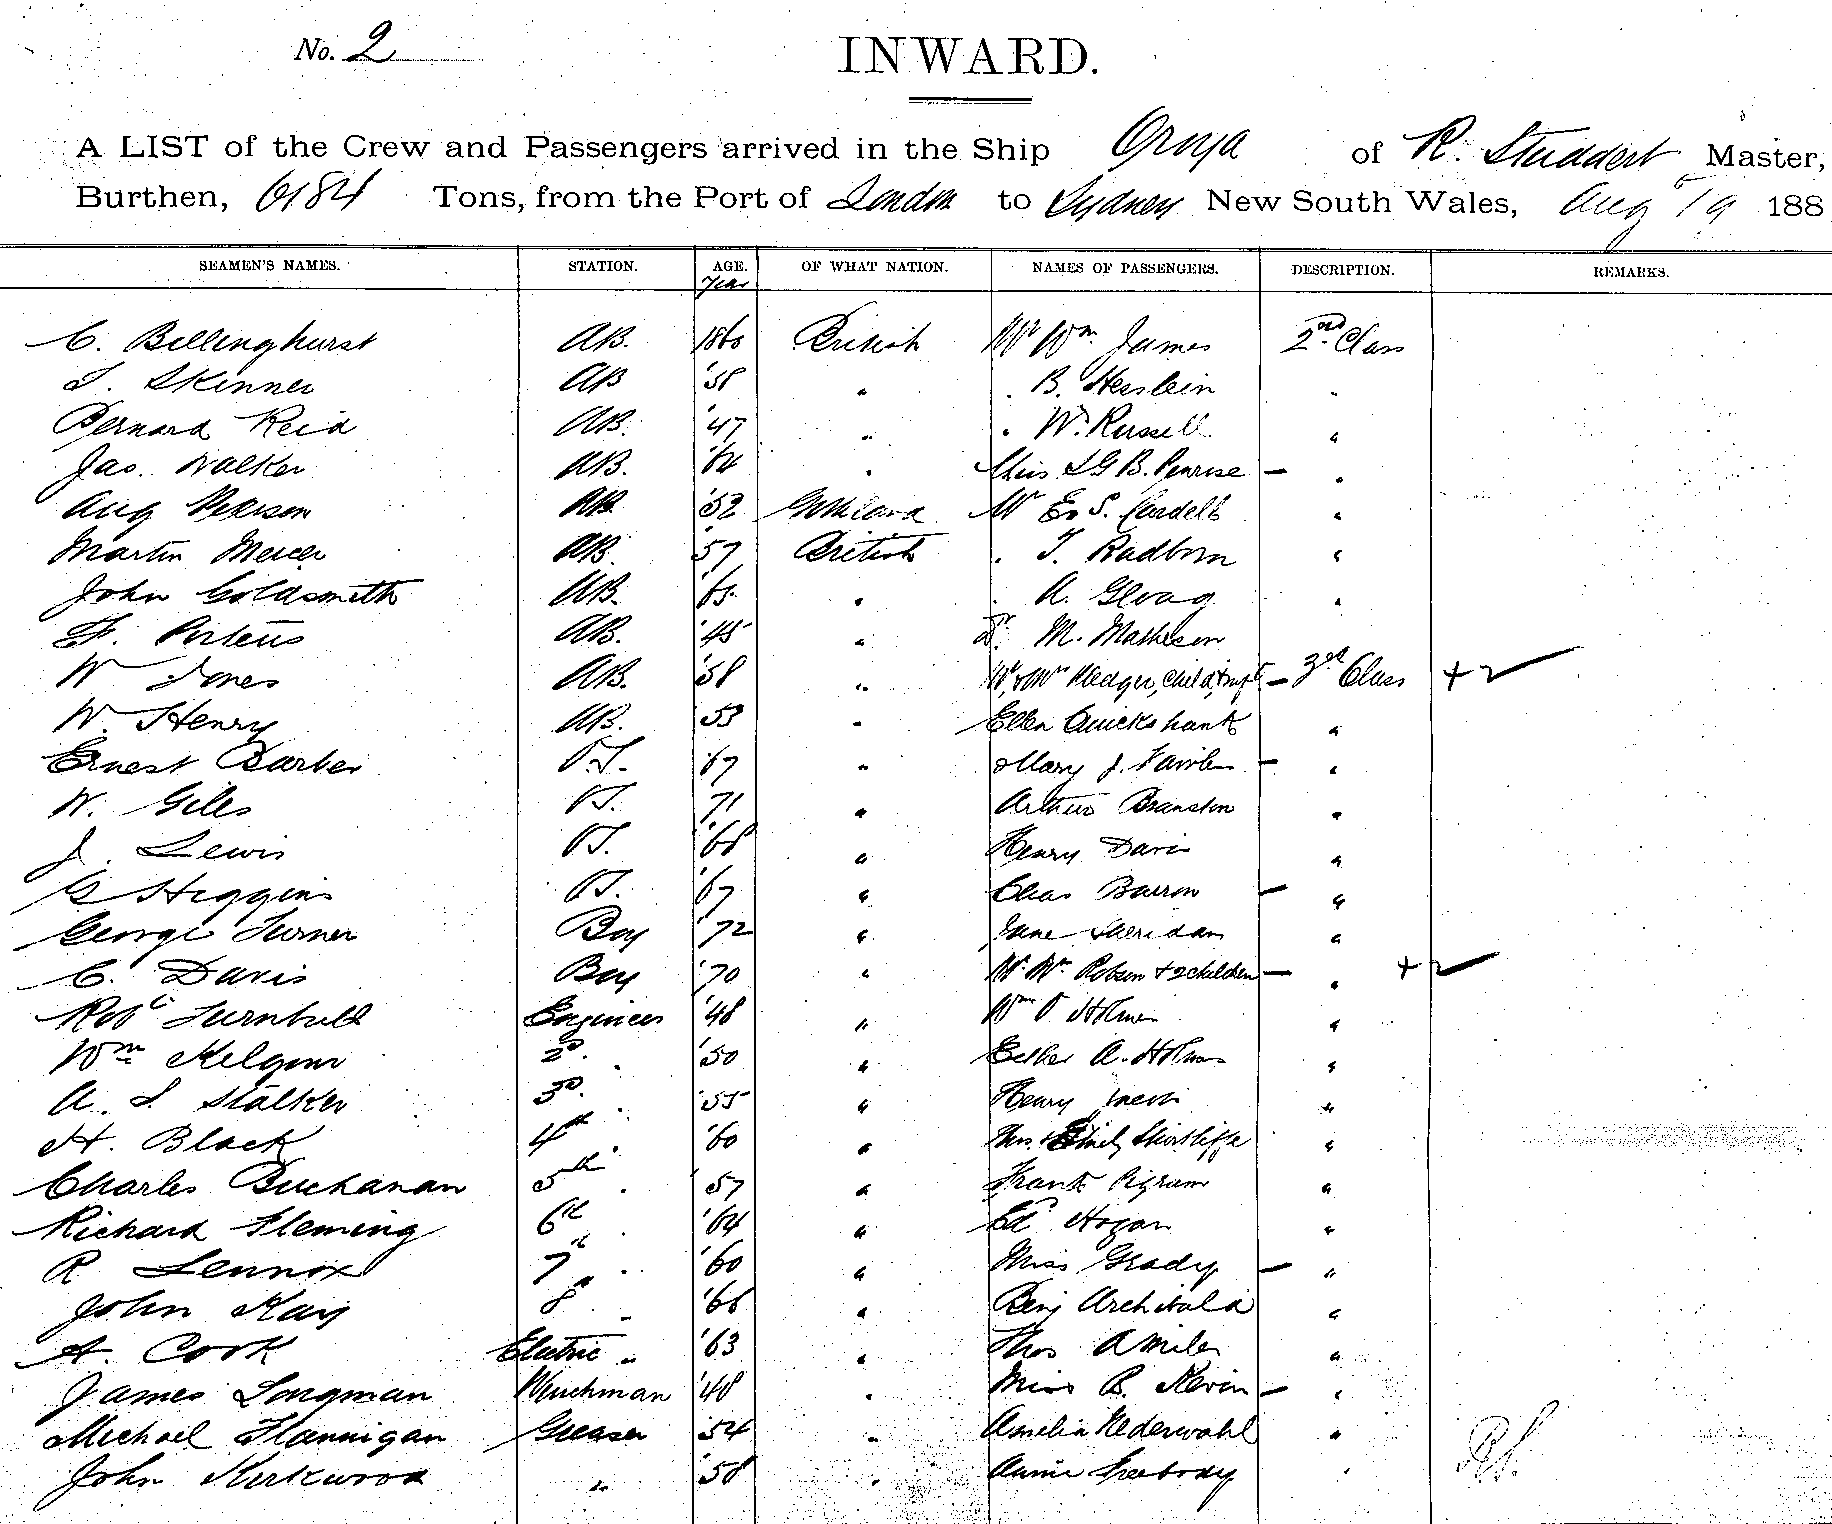 No. 2
INWARD.
A LIST of the Crew and Passengers arrived in the Ship Oroya of R. Studdert Master,
Burthen, 6184 Tons, from the Port of London to Sydney New South Wales, Aug 19 188
SEAMEN'S NAMES. STATION. AGE. OF WHAT NATION. NAMES OF PASSENGERS. DESCRIPTION. REMARKS.
Year
C. Bellinghurst AB. 1860 British Mr Wm James 2nd Class
T. Skinner AB '58 " . B. "
Bernard Reid AB. '47 " . W. Russell "
Jas. Walker AB. '62 " Miss L G B. Penrose — "
Aug AB. '52 Mr "
Martin Mercer AB. '57 British . T. Radborn "
John Goldsmith AB. '65 " . A. Gloag "
F. Porteus AB. '45 " Dr. M. Matheson "
W Jones AB. '58 " Mr & Mrs Pledger, child, & inft — 3rd Class + 2 ✓
W. Henry AB. 53 " Ellen Cruickshank "
Ernest Barber O.S. '67 " Mary J. — "
W. Giles OS. '71 " Arthur Branston "
J. Lewis OS. '68 " Henry Davis "
G Higgins OS. '67 " Chas Barron — "
George Turner Boy '72 " Jane Sheridan "
C. Davis Boy '70 " Mr Mrs Robson + 2 children — " + 2 ✓
Robt Turnbull Engineer '48 " Wm Holmes "
Wm Kilgour 2d. " '50 " Esther A. Holmes "
A. S. Stalker 3d. " '55 " Henry "
H. Black 4th " '60 " Emily "
Charles Buchanan 5th " '57 " Frank Pigram "
Richard Fleming 6th " '64 " Ed Hogan "
R Lennox 7th " '60 " Miss Grady — "
John Kay 8 " '66 " Benj Archibald "
A. Cook Electric " '63 " Thos A Miles "
James Longman Winchman '48 " Miss B. Kevin — "
Michael Flannigan Greaser '54 " Amelia Nederwahl "
John Kirkwood " '58 " Annie Peabody "